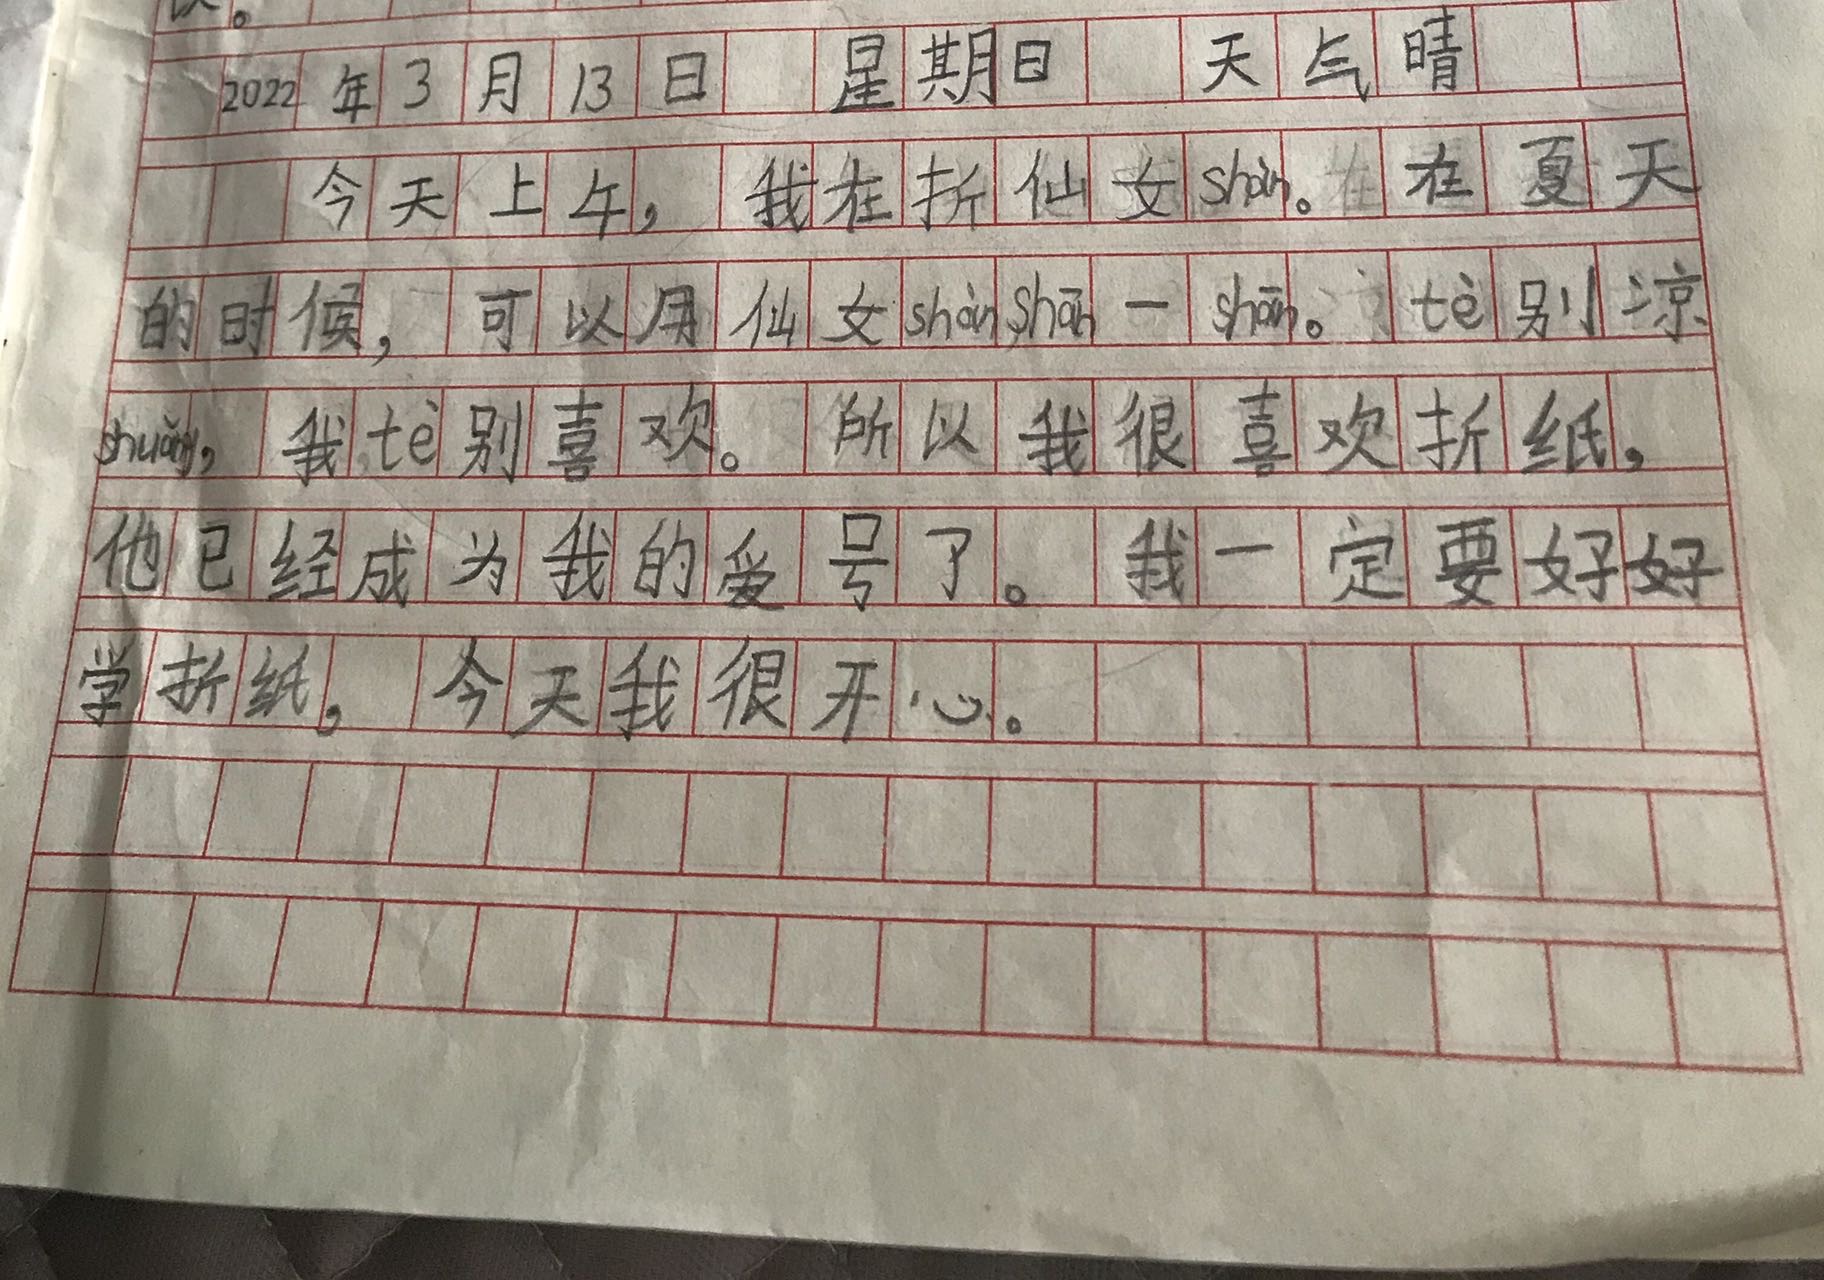 。
2022年3月13日 星期日 天气晴
今天上午，我在折仙女shàn。在夏天
的时候，可以用仙女shànshān一shān。tè别凉
shuǎng，我tè别喜欢。所以我很喜欢折纸，
他已经成为我的爱号了。我一定要好好
学折纸，今天我很开心。